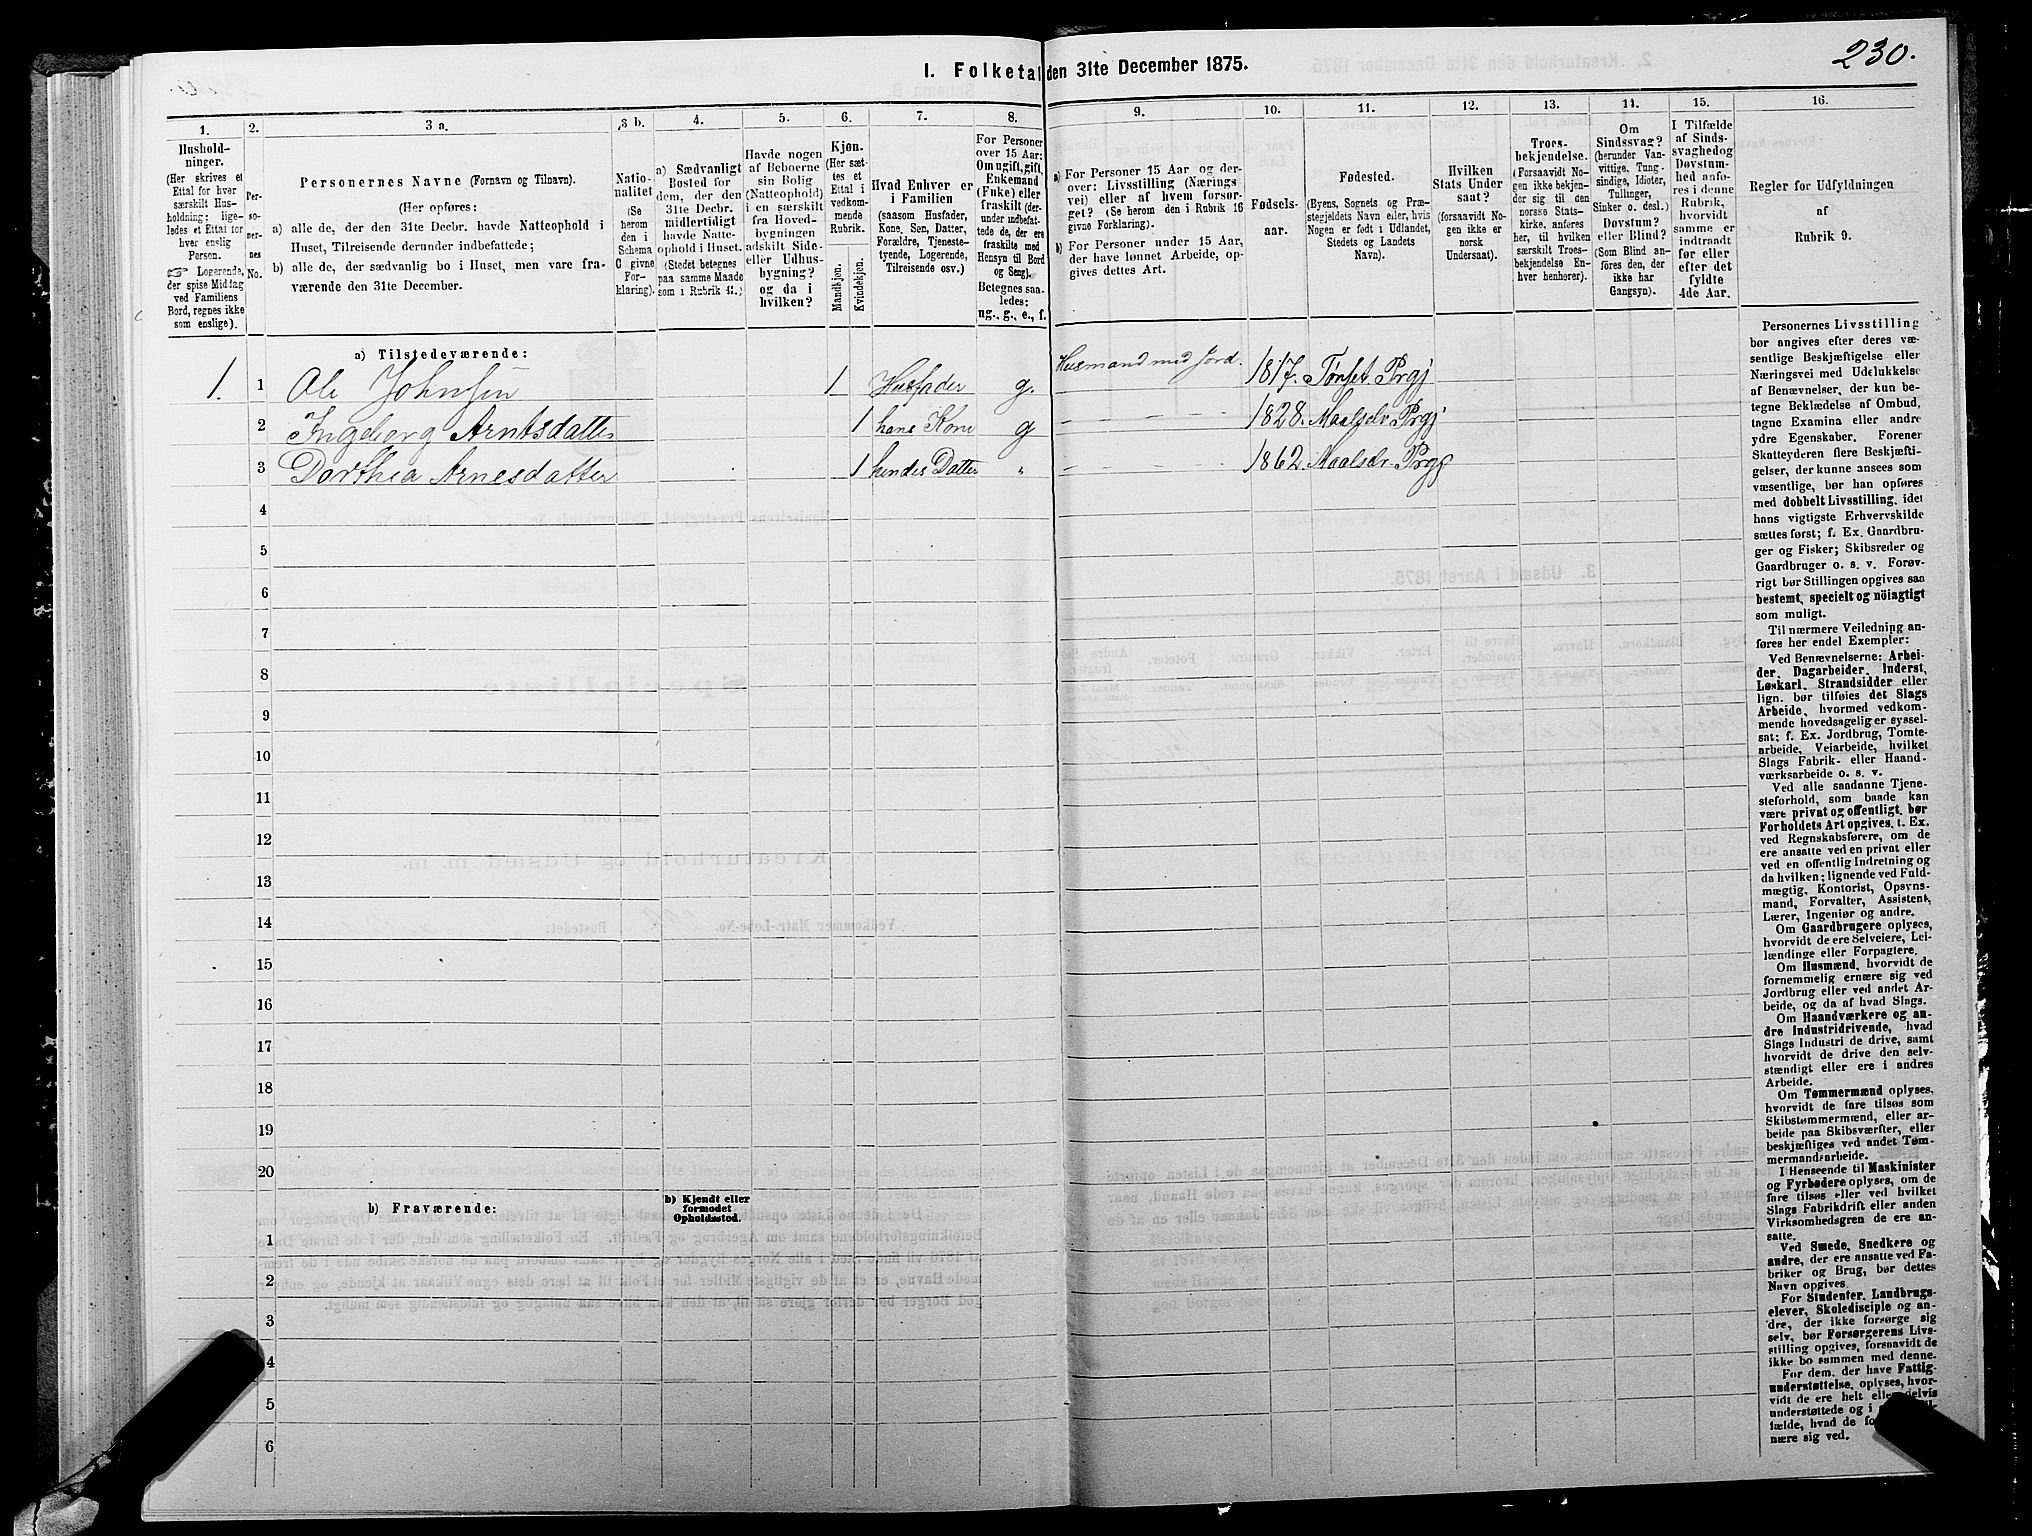 230.
I. Folketal den 31te December 1875.
1. 2. 3 a. 3 b. 4. 5. 6. 7. 8. 9. 10. 11. 12. 13. 14. 15. 16.
Hushold-
ninger.
(Her skrives et
Ettal for hver
særskilt Hus-
holdning: lige-
ledes et Ettal for
hver enslig
Person.
☞ Logerende,
der spise Middag
ved Familiens
Bord, regnes ikke
som enslige).
Per-
so-
ner-
nes
No.
Personernes Navne (Fornavn og Tilnavn).
(Her opføres:
a) alle de, der den 31te Decbr. havde Natteophold i
Huset, Tilreisende derunder indbefattede;
b) alle de, der sædvanlig bo i Huset, men vare fra-
værende den 31te December.
Natio-
nalitet
(Se
herom
den i
Schema
C givne
For-
klaring).
a) Sædvanligt
Bosted for
dem, der den
31te Decbr.
midlertidigt
havde Natte-
ophold i Huset.
(Stedet betegnes
paa samme Maade
som i Rubrik 11.)
Havde nogen
af Beboerne
sin Bolig
(Natteophold)
i en særskilt
fra Hoved-
bygningen
adskilt Side-
eller Udhus-
bygning?
og da i
hvilken?
Kjøn.
(Her sæt-
tes et
Ettal i
vedkom-
mende
Rubrik.
Mandkjøn.
Kvindekjøn.
Hvad Enhver er
i Familien
(saasom Husfader,
Kone, Søn, Datter,
Forældre, Tjeneste-
tyende, Logerende,
Tilreisende osv.)
For Personer
over 15 Aar:
Om ugift, gift,
Enkemand
(Enke) eller
fraskilt (der-
under indbefat-
tede de, der ere
fraskilte med
Hensyn til Bord
og Seng).
Betegnes saa-
ledes:
ug., g., e., f.
a) For Personer 15 Aar og der-
over: Livsstilling (Nærings
vei) eller af hvem forsør-
get? (Se herom den i Rubrik 16
givne Forklaring).
b) For Personer under 15 Aar,
der have lønnet Arbeide, op-
gives dettes Art.
Fødsels-
aar.
Fødested.
(Byens, Sognets og Præ-
stegjeldets Navn eller, hvis
Nogen er født i Udlandet,
Stedets og Landets
Navn).
Hvilken
Stats Under
saat?
(forsaavidt No-
gen ikke er
norsk
Undersaat).
Troes-
bekjendelse.
(Forsaavidt No-
gen ikke bekjen-
der sig til den
norske Stats-
kirke, anføres
her, til hvilken
særskilt Troes-
bekjendelse En-
hver henhører).
Om
Sindssvag?
(herunder Van-
vittige, Tung-
sindige, Idioter,
Tullinger,
Sinker o. desl.)
Døvstum?
eller Blind?
(Som Blind an-
føres den, der
ikke har
Gangsyn).
I Tilfælde
af Sinds-
svaghed og
Døvstum-
hed anfø-
res i denne
Rubrik,
hvorvidt
samme er
indtraadt
før eller
efter det
fyldte
4de Aar.
Regler for Udfyldningen
af
Rubrik 9.
a) Tilstedeværende:
1. 1 Ole Johnsen 1 Husfader g. Husmand med Jord. 1817. Tønset Prgj
2 Ingeborg Arntsdatter 1 hans Kone g — — — 1828. Maalselv Prgj
3 Dorthea Arnesdatter 1 hendes Datter " — — — 1862. Maalselv Prgj
4
5
6
7
8
9
10
11
12
13
14
15
16
17
18
19
20
b) Fraværende:
b) Kjendt eller
formodet
Opholdssted.
1
2
3
4
5
6
Personernes Livsstilling
bør angives efter deres væ-
sentlige Beskjæftigelse eller
Næringsvei med Udelukkelse
af Benævnelser, der kun be-
tegne Beklædelse af Ombud,
tagne Examina eller andre
ydre Egenskaber. Forener
Skatteyderen flere Beskjæfti-
gelser, der kunne ansees som
væsentlige, bør han opføres
med dobbelt Livsstilling, idet
hans vigtigste Erhvervskilde
sættes først; f. Ex. Gaardbru-
ger og Fisker; Skibsreder og
Gaardbruger o. s. v. Forøv-
rigt bør Stillingen opgives saa
bestemt, specielt og nöiagtigt
som muligt.
Til nærmere Veiledning an-
føres her endel Exempler:
Ved Benævnelserne: Arbei-
der, Dagarbeider, Inderst,
Løskarl, Strandsidder eller
lign. bør tilføies det Slags
Arbeide, hvormed vedkom-
mende hovedsagelig er syssel-
sat; f. Ex. Jordbrug, Tomte-
arbeide, Veiarbeide, hvilket
Slags Fabrik- eller Haand-
værksarbeide o. s. v.
Ved alle saadanne Tjene-
steforhold, som baade kan
være privat og offentligt, bør
Forholdets Art opgives, t. Ex.
ved Regnskabsførere, om de
ere ansatte ved en privat eller
ved en offentlig Indretning og
da hvilken; lignende ved Fuld-
mægtig, Kontorist, Opsyns-
mand, Forvalter, Assistent,
Lærer, Ingeniør og andre.
Om Gaardbrugere oplyses,
hvorvidt de ere Selveiere, Lei-
lændinge eller Forpagtere.
Om Husmænd, hvorvidt de
fornemmelig ernære sig ved
Jordbrug eller ved andet Ar-
beide, og da af hvad Slags.
Om Haandværkere og an-
dre Industridrivende, hvad
Slags Industri de drive, samt
hvorvidt de drive den selv-
stændigt eller ere i andres
Arbeide.
Om Tømmermænd oplyses,
hvorvidt de fare tilsøs som
Skibstømmermænd, eller ar-
beide paa Skibsværfter, eller
beskjæftiges ved andet Tøm-
mermandsarbeide.
I Henseende til Maskinister
og Fyrbødere oplyses, om de
fare tilsøs eller ved hvilket
Slags Fabrikdrift eller anden
Virksomhedsgren de ere an-
satte.
Ved Smede, Snedkere og
andre, der ere ansatte ved Fa-
briker og Brug, bør dettes
Navn opgives.
For Studenter, Landbrugs-
elever, Skoledisciple og an-
dre, der ikke forsørge sig
selv, bør Forsørgerens Livs-
stilling opgives, forsaavidt de
ikke bo sammen med denne.
For dem, der have Fattig-
understøttelse, oplyses, hvor-
vidt de ere helt eller delvis
understøttede og i
fælde, hvad de
nære sig ved.